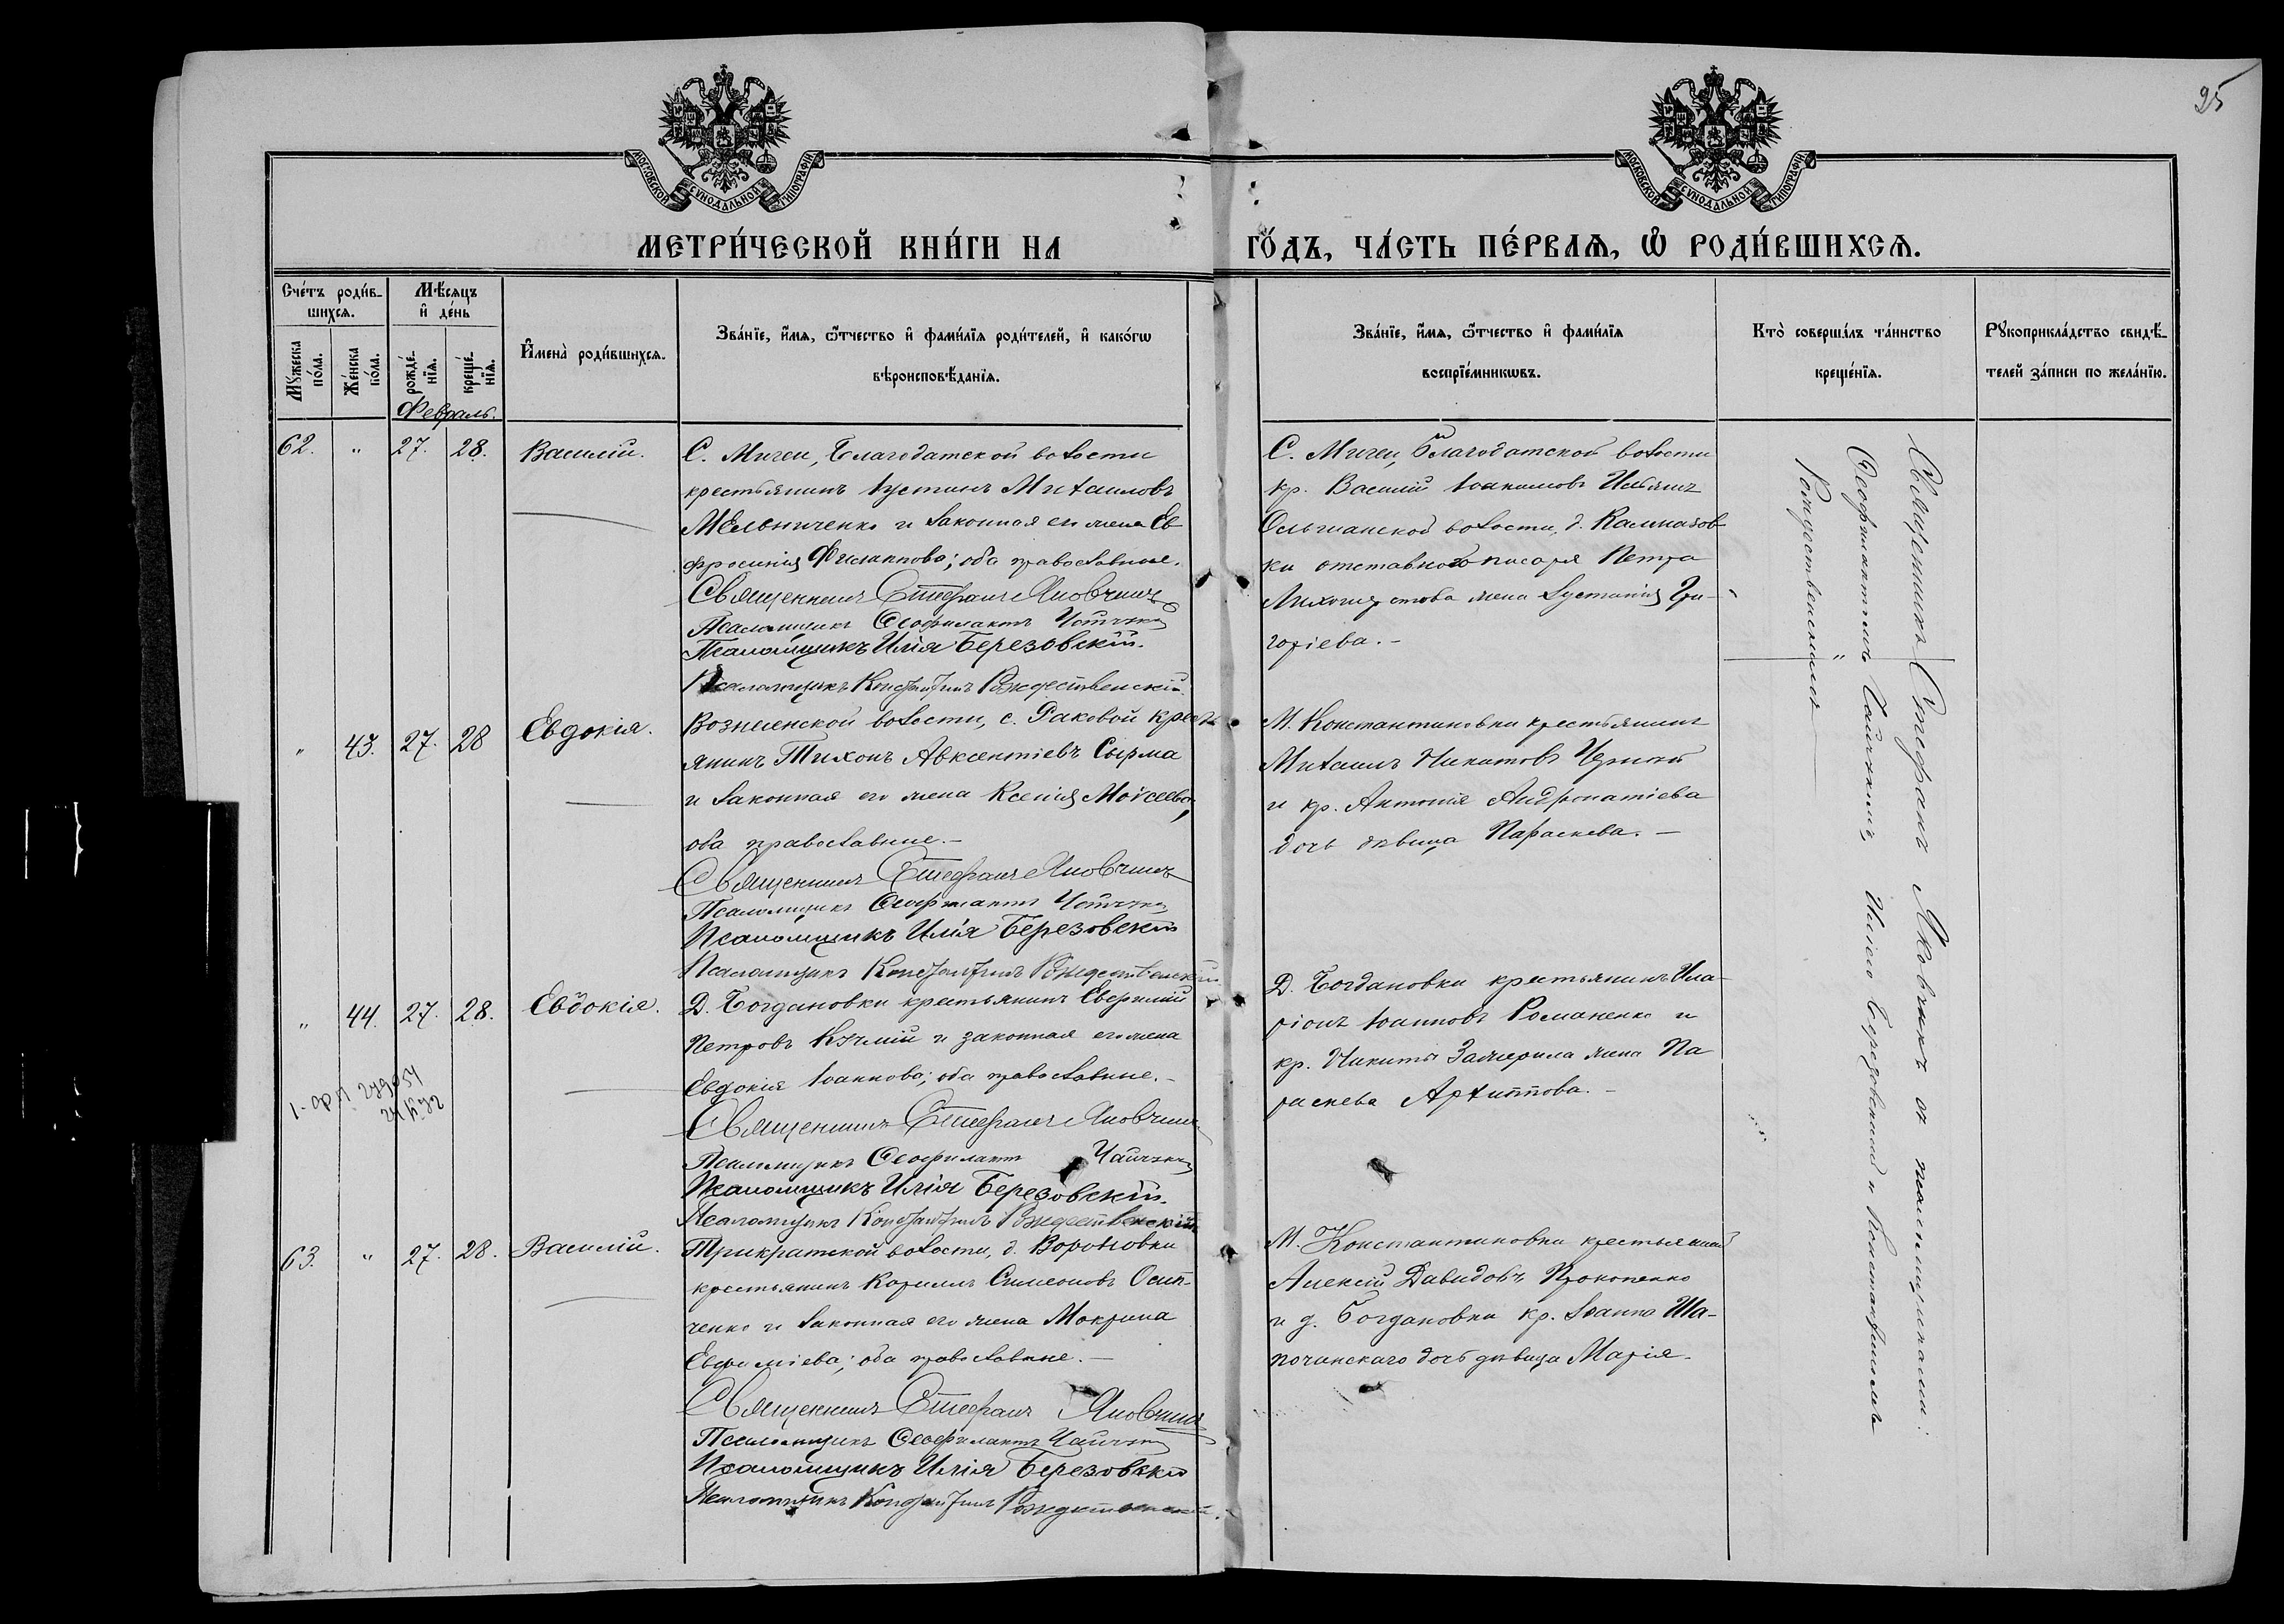 25
МОСКОВСКОЙ СУНОДАЛЬНОЙ ТИПОГРАФІИ
МОСКОВСКОЙ СУНОДАЛЬНОЙ ТИПОГРАФІИ
МЕТРИ́ЧЕСКОЙ КНИ́ГИ НА
ГО́ДЪ, ЧА́СТЬ ПЕ́РВАѦ, Ѡ҆ РОДИ́ВШИХСѦ.
Сче́тъ роди́в-
шихсѧ.
Мꙋжеска по́ла.
Же́нска по́ла.
Мѣ́сѧцъ и҆ де́нь
рожде́-нїѧ.
креще́-нїѧ.
И҆мена̀ роди́вшихсѧ.
Зва́нїе, и҆́мѧ, ѻ҆́тчество и҆ фами́лїѧ роди́телей, и҆ како́гѡ
вѣроисповѣ́данїѧ.
Зва́нїе, и҆́мѧ, ѻ҆́тчество и҆ фами́лїѧ
воспрїе́мникѡвъ.
Кто̀ соверша́лъ та́инство
креще́нїѧ.
Рꙋкоприкла́дство свидѣ́-
телей за́писи по жела́нїю.
Февраль.
62. " 27. 28. Василій.
С. Мигеи, Благодатской волости
крестьянинъ Іустинъ Михаиловъ
Мельниченко и законная его жена Ев
фросинія Филиппова; оба православные.
Священникъ Стефанъ Яковчикъ
Псаломщикъ Ѳеофилактъ Чайчкій
Псаломщикъ Илія Березовскій.
Псаломщикъ Константинъ Рождественскій.
С. Мигеи, Благодатской волости
кр. Василій Іоакимовъ Ильянъ
Ольшанской волости, д. Калмазов
ки отставного писаря Петра
жена Іустинія Гри-
горіева.-
" 43. 27. 28 Евдокія.
Вознесенской волости, с. Раковой кресть
янинъ Тихонъ Авксентіевъ Сырма
и законная его жена Ксенія Моѵсеева,
оба православные.-
Священникъ Стефанъ Яковчикъ
Псаломщикъ Ѳеофилактъ Чайчкій
Псаломщикъ Илія Березовскій
Псаломщикъ Константинъ Рождественскій
М. Константиновки крестьянинъ
Михаилъ Никитовъ Черный
и кр. Антонія
дочь дѣвица Параскева.-
" 44. 27. 28. Евдокія.
Д. Богдановки крестьянинъ Евѳимій
Петровъ и законная его жена
Евдокія Іоаннова; оба православные.-
Священникъ Стефанъ Яковчикъ
Псаломщикъ Ѳеофилактъ Чайчкій
Псаломщикъ Илія Березовскій.
Псаломщикъ Константинъ Рождественскій
Д. Богдановки крестьянинъ Ила-
ріонъ Іоанновъ Романенко и
кр. Никиты жена Па
раскева Архиппова.-
63. " 27. 28. Василій.
Трикратской волости, д. Вороновки
крестьянинъ Кириллъ Симеоновъ Осип-
ченко и законная его жена Мокрина
Евфиміева; оба православные.-
Священникъ Стефанъ Яковчикъ
Псаломщикъ Ѳеофилактъ Чайчкій
Псаломщикъ Илія Березовскій
Псаломщикъ Константинъ Рождественскій.
М. Константиновки крестьянинъ
Алексій Давидовъ Прокопенко
и д. Богдановки кр. Іоанна Ша-
починскаго дочь дѣвица Марія.
Священникъ Стефанъ Яковчикъ съ псаломщиками:
Ѳеофилактомъ Чайчкимъ, Иліею Березовскимъ и Константиномъ
Рождественскимъ